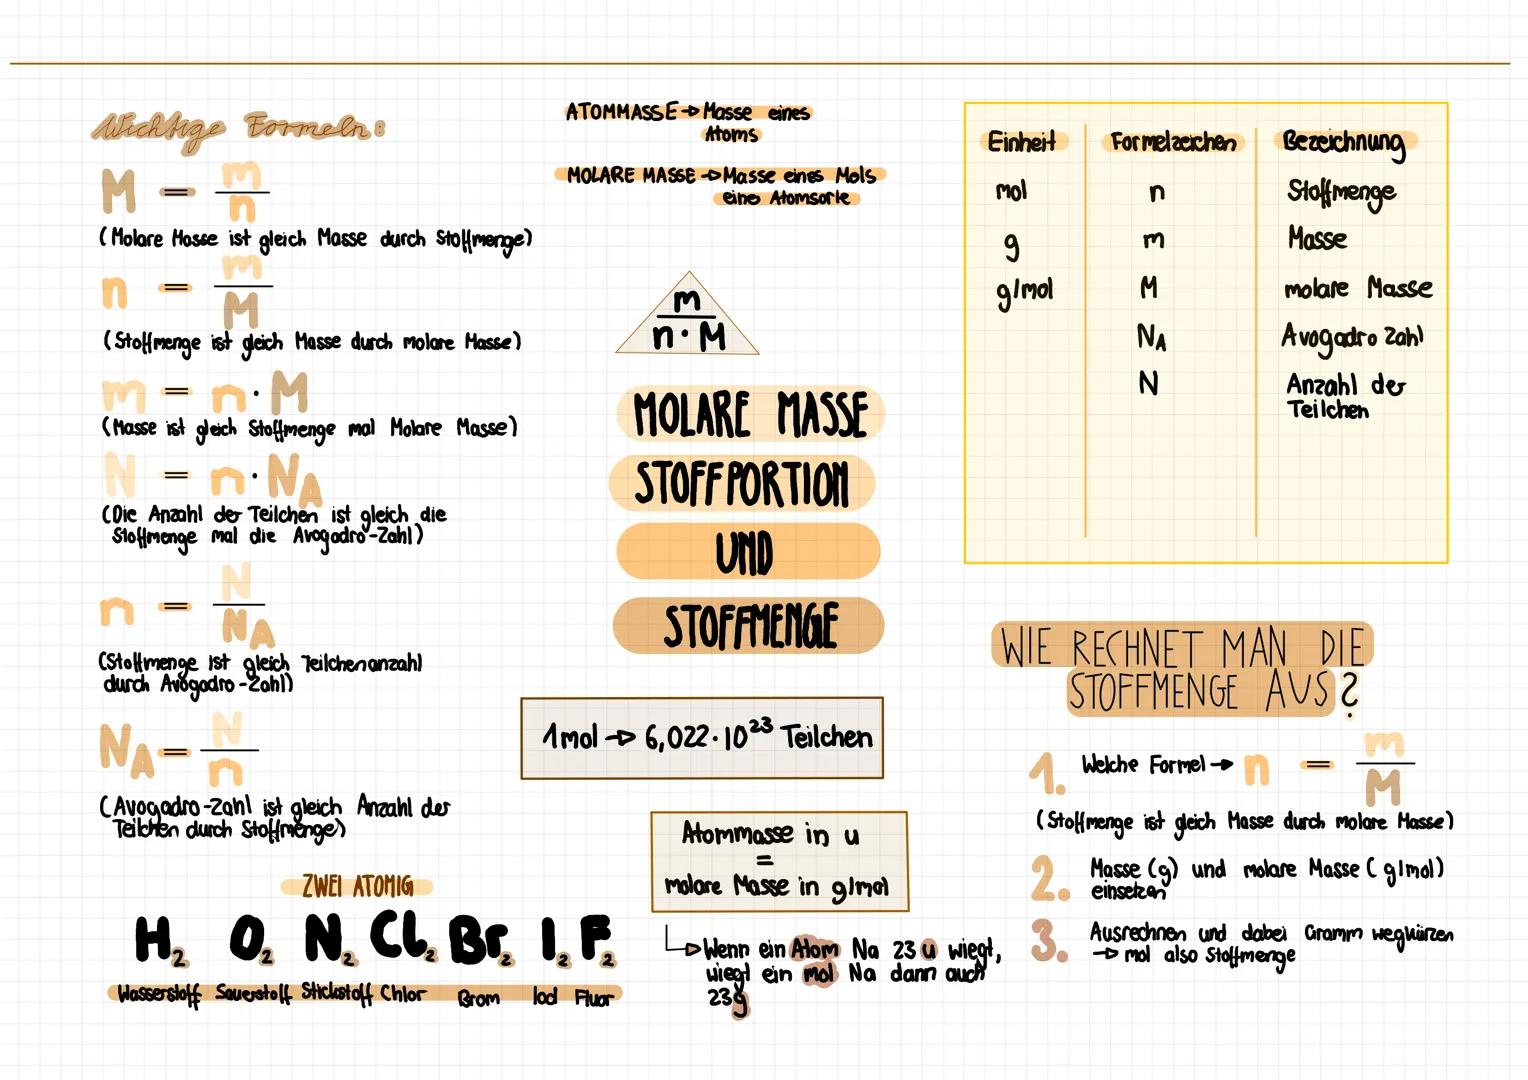 Wichtige Formeln:
M = m/n
(Molare Masse ist gleich Masse durch Stoffmenge)
n = m/M
(Stoffmenge ist gleich Masse durch molare Masse)
m = n · M
(Masse ist gleich Stoffmenge mal Molare Masse)
N = n · N_A
(Die Anzahl der Teilchen ist gleich die
Stoffmenge mal die Avogadro-Zahl)
n = N/N_A
(Stoffmenge ist gleich Teilchenanzahl
durch Avogadro-Zahl)
N_A = N/n
(Avogadro-Zahl ist gleich Anzahl der
Teilchen durch Stoffmenge)
ZWEI ATOMIG
H₂ O₂ N₂ Cl₂ Br₂ I₂ F₂
Wasserstoff Sauerstoff Stickstoff Chlor Brom Iod Fluor
ATOMMASSE → Masse eines
Atoms
MOLARE MASSE → Masse eines Mols
eine Atomsorte
m
n · M
MOLARE MASSE
STOFFPORTION
UND
STOFFMENGE
1mol → 6,022·10²³ Teilchen
Atommasse in u
=
molare Masse in g/mol
→ Wenn ein Atom Na 23 u wiegt,
wiegt ein mol Na dann auch
23g
Einheit Formelzeichen Bezeichnung
mol n Stoffmenge
g m Masse
g/mol M molare Masse
N_A Avogadro Zahl
N Anzahl der
Teilchen
WIE RECHNET MAN DIE
STOFFMENGE AUS?
1. Welche Formel → n = m/M
(Stoffmenge ist gleich Masse durch molare Masse)
2. Masse (g) und molare Masse (g/mol)
einsetzen
3. Ausrechnen und dabei Gramm wegkürzen
→ mol also Stoffmenge